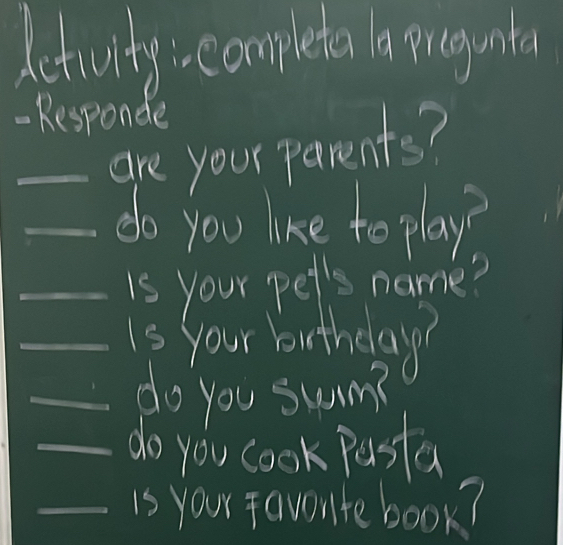 Activity:-completa la pregunta
-Responde
___ are your parents?
___ do you like to play?
___ is your pet's name?
___ is your birthday?
___ do you swim?
___ do you cook Pasta
___ is your Favorite book?